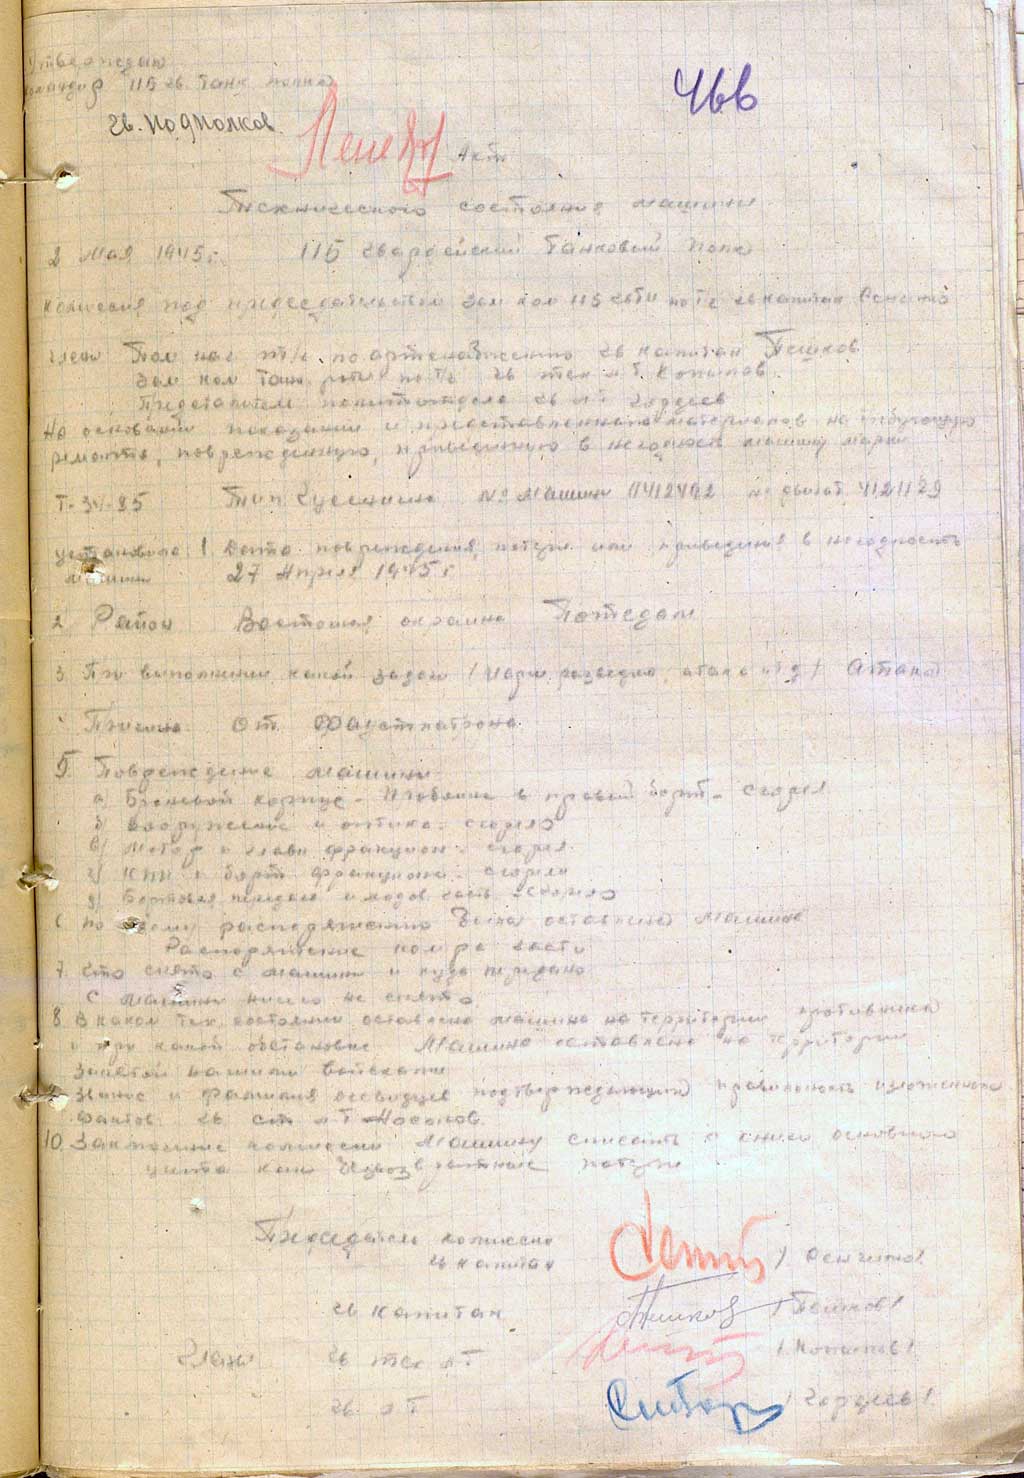 Утверждаю
Командир 115 гв. танк полка
466
гв. подполков.
Акт
Технического состояния машины
2 Мая 1945 г. 115 гвардейский танковый полк
Комиссия под председательством Зам ком 115 гвтп по т/ч гв капитан
члены Пом нач т/ч по артснабжению гв капитан Пешков
Зам ком танк роты по т/ч гв тех л-т Копылов
Представитель политотдела гв л-т Гордеев
На основании показаний и представленного материалов на требующую
ремонта, поврежденную, приведенную в негодность машину марки
Т-34-85 Тип Гусенична № машины 4124129
установила 1. Дата повреждения, потери или приведения в негодность
машины 27 Апреля 1945 г
2 Район Восточная окраина Потсдам
3. При выполнении какой задачи / марш разведка, атака и т д / Атака
Причина От Фаустпатрона
5. Повреждение машины
а) Броневой корпус - Пробоина в правый борт - сгорел
б) Вооружение и оптика - сгорело
в) Мотор и главн фрикцион - сгорел
г) КПП и борт фрикциона - сгорели
д) Бортовая передача и ходов часть - сгорело
6 По чьему распоряжению была оставлена машина
Распоряжение ком ра части
7. Что снято с машины и куда передано
С машины ничего не снято
8 В каком тех состоянии оставлена машина на территории противника
и при какой обстановке Машина оставлена на территории
занятой нашими войсками
9 Звание и Фамилия очевидцев подтверждающий правильность изложенного
фактов гв ст л-т Масолов
10. Заключение комиссии Машину списать с книги основного
учета как безвозвратные потери
Председатель комиссии
гв капитан
гв капитан Пешков / Пешков /
Члены гв тех л-т / Копылов /
гв. л-т / Гордеев /